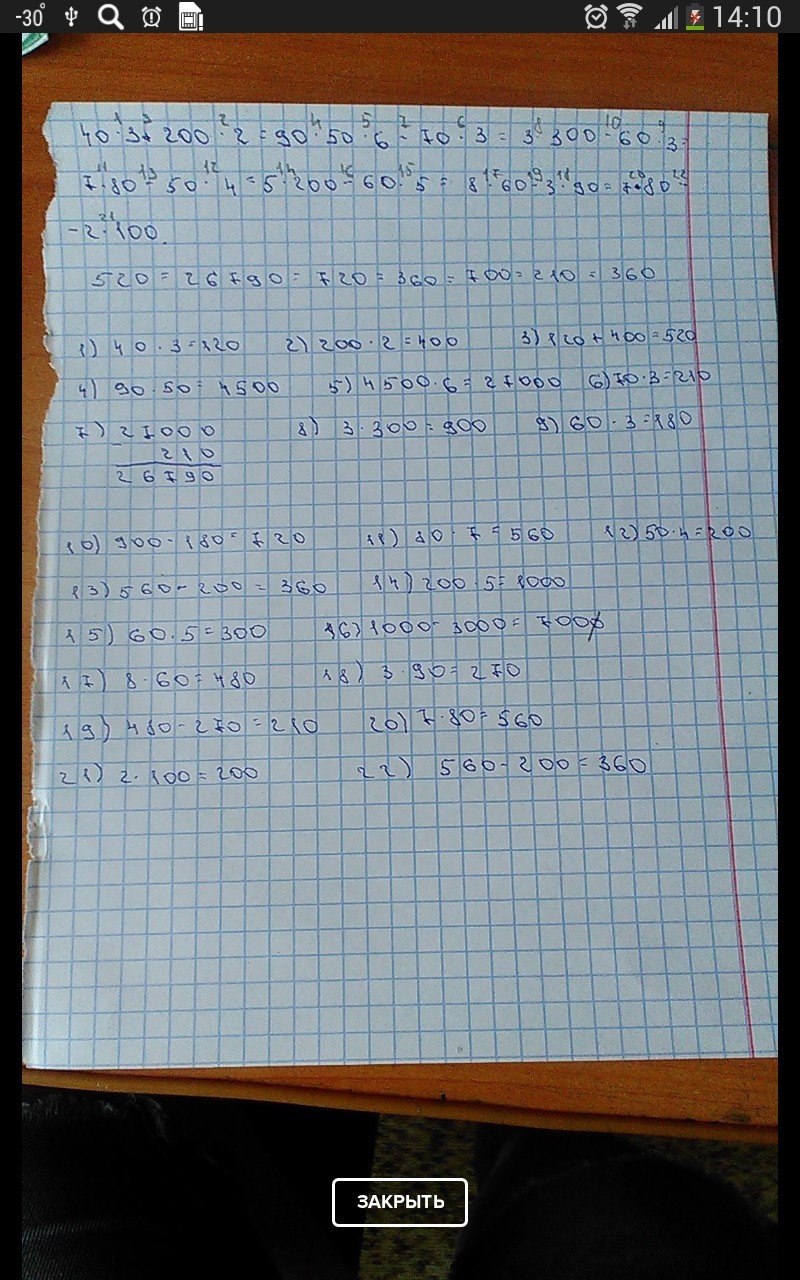 -30° 14:10
1 3 2 4 5 7 6 8 10 9
40·3+200·2=90·50·6-70·3=3·300-60·3=
11 13 12 14 16 15 17 19 18 20 22
7·80-50·4=5·200-60·5=8·60-3·90=7·80-
21
-2·100.
520=26790=720=360=700=210=360
1) 40·3=120 2) 200·2=400 3) 120+400=520
4) 90·50=4500 5) 4500·6=27000 6) 70·3=210
7) 27000 8) 3·300=900 9) 60·3=180
- 210
26790
10) 900-180=720 11) 80·7=560 12) 50·4=200
13) 560-200=360 14) 200·5=1000
15) 60·5=300 16) 1000-3000=700
17) 8·60=480 18) 3·90=270
19) 480-270=210 20) 7·80=560
21) 2·100=200 22) 560-200=360
ЗАКРЫТЬ